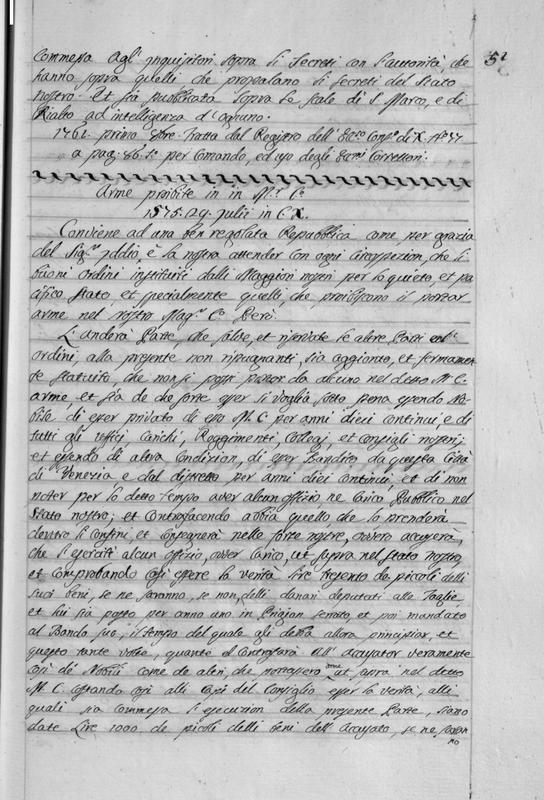 52
commessa agl' inquisitori sopra li secreti con l'autorità, che
hanno sopra quelli che propalano li secreti del Stato
nostro. Et sia pubblicata sopra le scale di S. Marco, e di
Rialto ad intelligenza d'ognuno.
1762. primo Tratta dal Registro dell' Ecc.so Cons.o de X.
a pag. 86. t.o per comando, ed uso degli Ecc.mi Correttori.
Arme proibite in in M.r C.o
1575. 29. Julii in C. X.
Conviene ad una ben regolata Repubblica come per grazia
del Sig.r Iddio, è la nostra attender con ogni circospezion, che li
buoni ordini instituiti dalli Maggiori nostri per lo quieto, et pa
cifico stato et specialmente quelli, che proibiscono il portar
arme nel nostro Mag.r C.o Però.
L'anderà Parte, che salve, et riservate le altre Parti
ordini, alla presente non ripugnanti, sia aggionto, et fermamen
te statuito, che non si possi portar da alcuno nel detto M. C.
arme et sia de che sorte esser si voglia sotto pena essendo No
bile di esser privato di esso M. C. per anni dieci continui e di
tutti gli uffici, Carichi, Reggimenti, Collegi et Consigli nostri;
et essendo di altra Condizion, di esser bandito da questa Città
di Venezia e dal distretto per anni dieci continui, et di non
poter per lo detto tempo aver alcun offizio ne carico Pubblico nel
stato nostro; et contrafacendo abbia quello, che lo prenderà
dentro li confini, et consegnerà nelle forze nostre, ovvero accuserà,
che si eserciti alcun offizio, over carico, ut supra nel stato nostro,
et comprobando così essere la verità lire trecento da piccoli delli
suoi beni, se ne saranno, se non, delli danari deputati alle Taglie,
et lui sia posto per anno uno in Prigion serrato, et poi mandato
al Bando suo, il tempo del quale gli debba allora principiar, et
questo tante volte, quante el contrafarà. All' accusator veramente
così de Nobili come de altri, che portassero arme ut supra nel detto
M. C. constando così alli Capi del Consiglio esser la verità, alli
quali sia commessa l'esecuzion della presente Parte, siano
date Lire 1000 de piccoli delli beni dell' Accusato, se ne saran
no